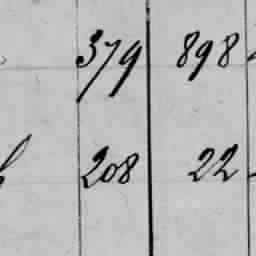 379 898
208 22